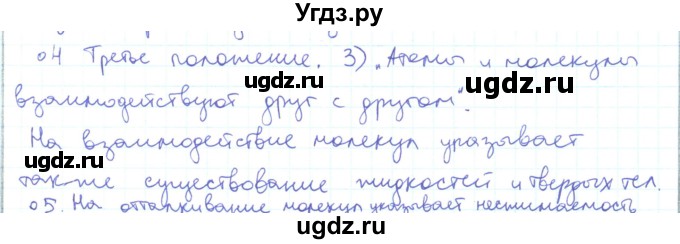 Угдз.ру
о4 Третье положение. 3) „Атомы и молекулы
ugdz.ru ugdz.ru
взаимодействуют друг с другом".
ugdz.ru
На взаимодействие молекул указывает
ugdz.ru ugdz.ru
также существование жидкостей и твердых тел.
ugdz.ru
о5. На отталкивание молекул указывает несжимаемость